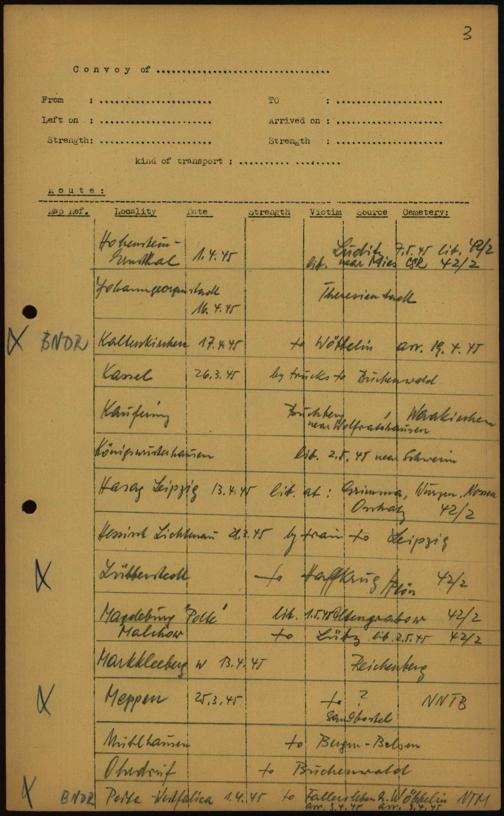 3
Convoy of ..................................
From : ...................... TO : ......................
Left on : ...................... Arrived on : ......................
Strength: ...................... Strength : ......................
kind of transport : .......... .........
Route:
Map Ref. Locality Date Strength Victim Source Cemetery:
Hohenstein- Luditz 7.5.45 lib. 42/2
Ernstthal 1.4.45 lib. near CSR 42/2
Johanngeorgenstadt Theresienstadt
16.4.45
BNDR Kaltenkirchen 17.4.45 to Wöbbelin arr. 19.4.45
Kassel 26.3.45 by trucks to Buchenwald
Kaufering Buchberg / Waakirchen
near Wolfratshausen
Königswusterhausen lib. 2.5.45 near Schwerin
Hasag Leipzig 13.4.45 lib. at: Grimma, Wurzen, Nossen
Oschatz 42/2
Hessisch Lichtenau 29.3.45 by train to Leipzig
Lübberstedt to Haffkrug / Plön 42/2
Magdeburg "Polte" lib. 1.5.45 Altengrabow 42/2
Malchow to Lübz lib. 2.5.45 42/2
Markkleeberg w 13.4.45 Reichenberg
Meppen 25.3.45 to ? NNTB
Sandbostel
Mühlhausen to Bergen-Belsen
Ohrdruf to Buchenwald
BNDR Porta-Westfalica 1.4.45 to Fallersleben & Wöbbelin NTM
arr. 3.4.45 arr.